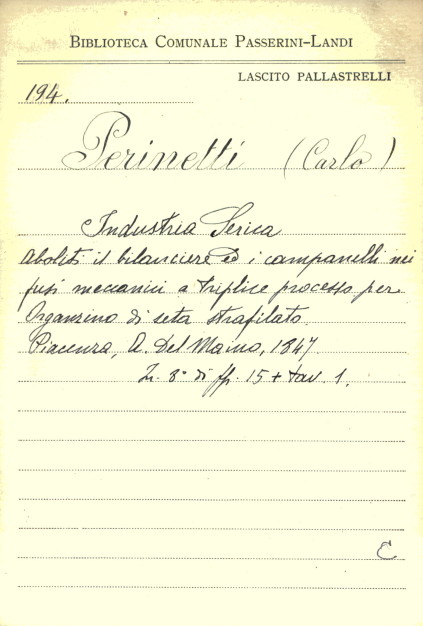 BIBLIOTECA COMUNALE PASSERINI-LANDI
LASCITO PALLASTRELLI
194.
Perinetti (Carlo)
Industria Serica
Aboliti il bilanciere ed i campanelli nei
fusi meccanici a triplice processo per
Organzino di seta strafilato
Piacenza, A. Del Maino, 1847
In 8° di pp. 15 + tav. 1.
C